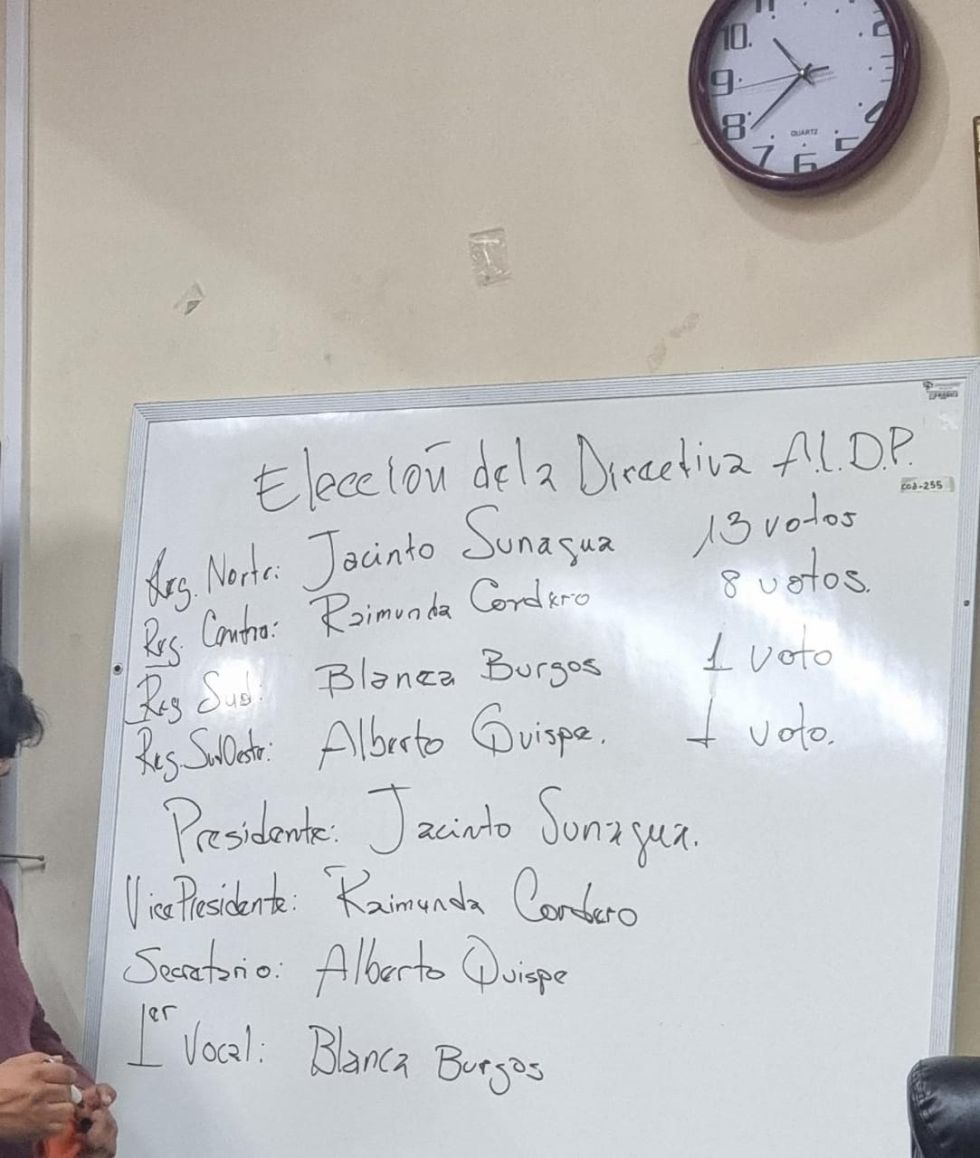 11
10
2
9
3
8
4
QUARTZ
7
6
5
Elección de la Directiva A.L.D.P.
cod-255
Reg. Norte: Jacinto Sunagua 13 votos
Reg. Centro: Raimunda Cordero 8 votos.
Reg Sud: Blanca Burgos 1 voto
Reg. SudOeste: Alberto Quispe. 1 voto.
Presidente: Jacinto Sunagua.
Vice Presidente: Raimunda Cordero
Secretario: Alberto Quispe
1er Vocal: Blanca Burgos